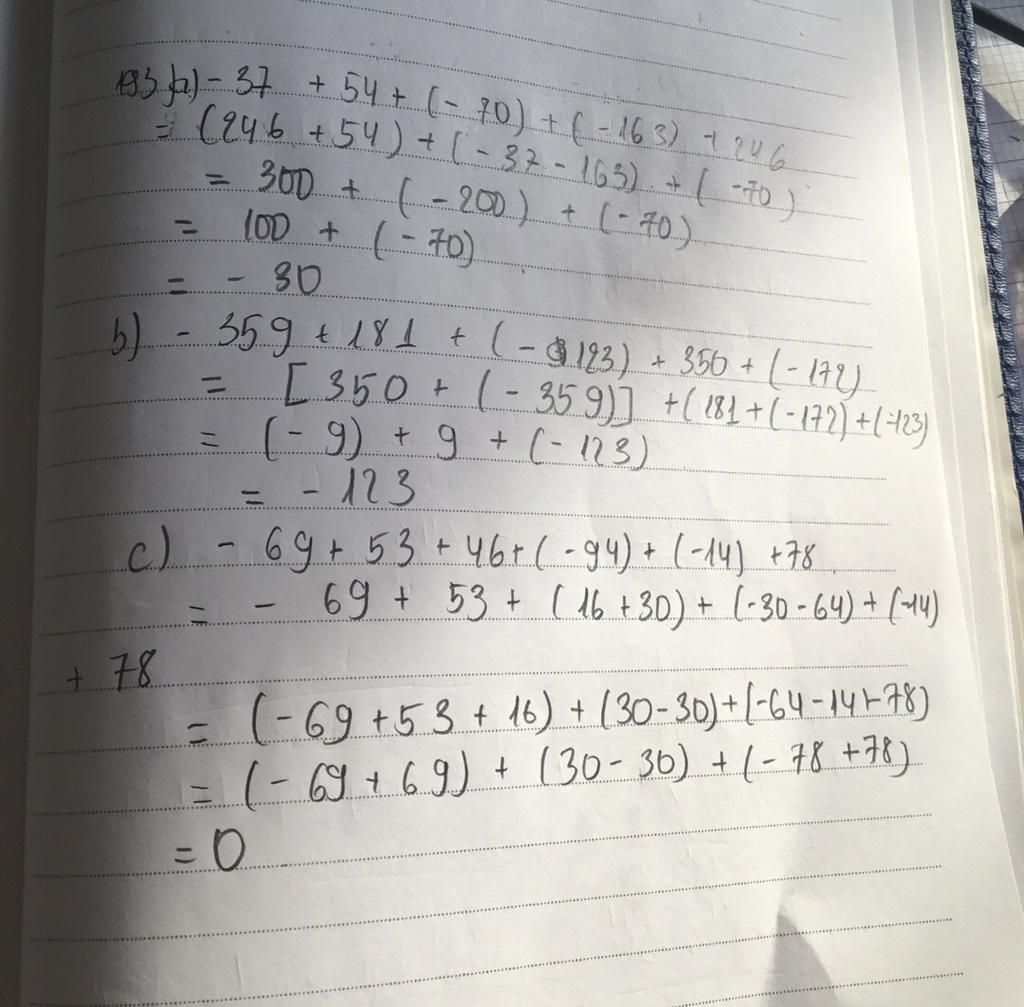 193, a) - 37 + 54 + (- 70) + (- 163) + 246
= (246 + 54) + (- 37 - 163) + ( -70)
= 300 + (- 200) + (- 70)
= 100 + (- 70)
= - 30
b) - 359 + 181 + (- 123) + 350 + (- 172)
= [350 + (- 359)] + (181 + (-172) + (-123)
= (- 9) + 9 + (- 123)
= - 123
c) - 69 + 53 + 46 + (-94) + (-14) +78
= - 69 + 53 + (16 +30) + (-30 - 64) + (-14)
+ 78
= (- 69 + 53 + 16) + (30 - 30) + (-64 - 14 +78)
= (- 69 + 69) + (30 - 30) + (- 78 +78)
= 0